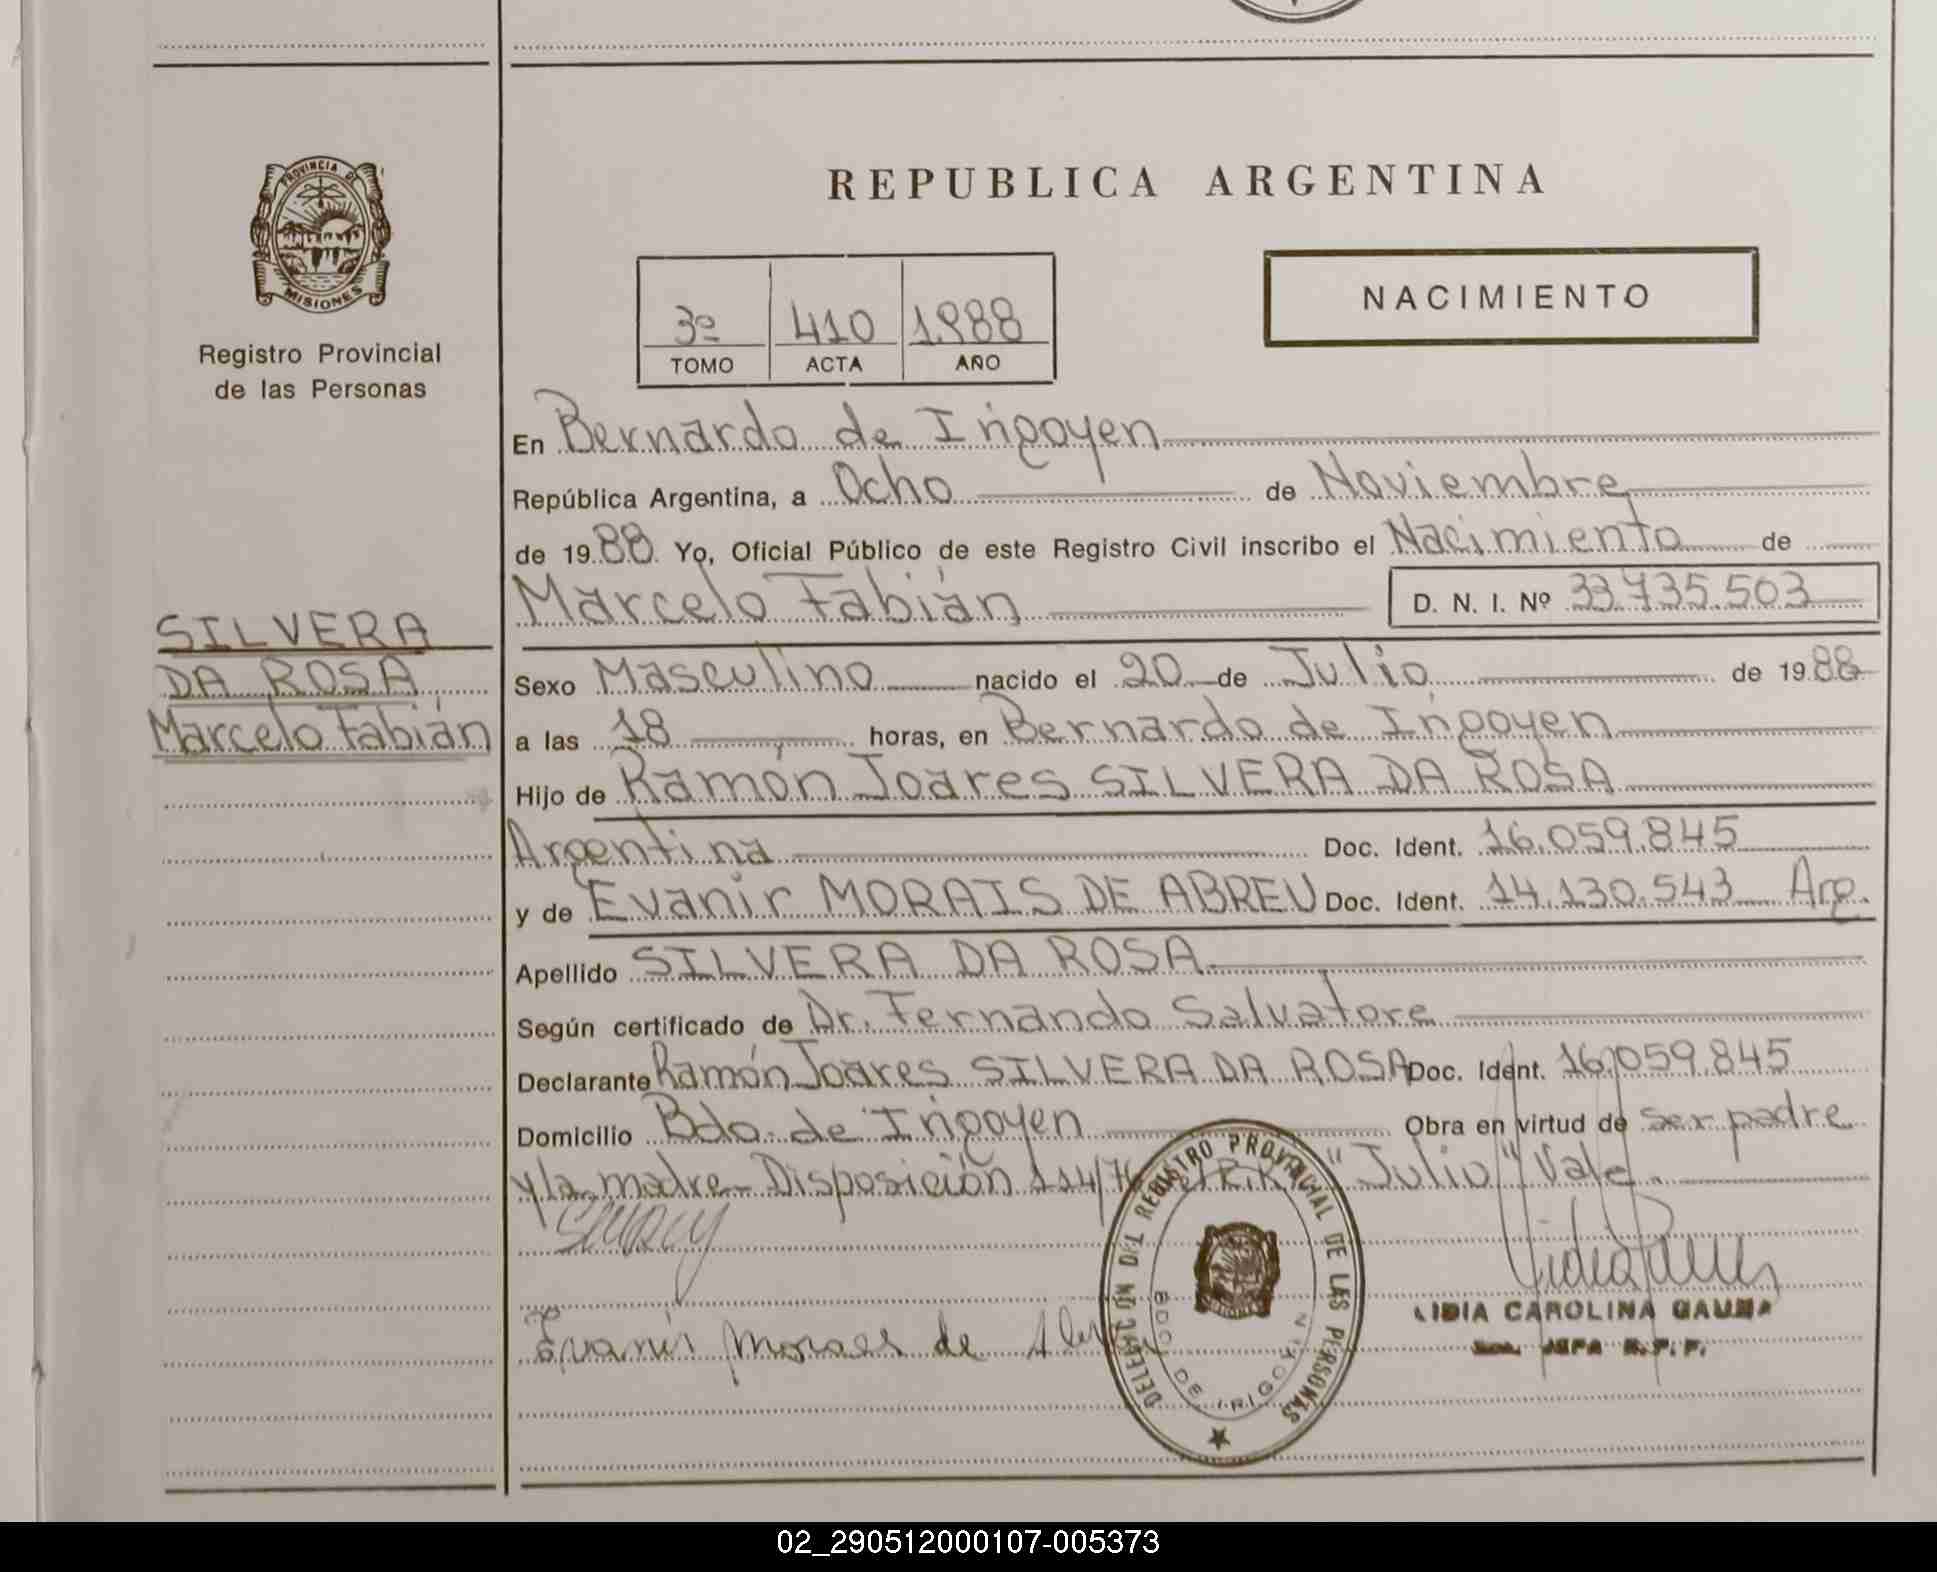 PROVINCIA DE
MISIONES
Registro Provincial
de las Personas
REPUBLICA ARGENTINA
3º 410 1988
TOMO ACTA AÑO
NACIMIENTO
En Bernardo de Irigoyen
República Argentina, a Ocho de Noviembre
de 1988 Yo, Oficial Público de este Registro Civil inscribo el Nacimiento de
Marcelo Fabián D. N. I. Nº 33.735.503
SILVERA
DA ROSA
Marcelo Fabián
Sexo Masculino nacido el 20 de Julio de 1988
a las 18 horas, en Bernardo de Irigoyen
Hijo de Ramón Joares SILVERA DA ROSA
Argentina Doc. Ident. 16.059.845
y de Evanir MORAIS DE ABREU Doc. Ident. 14.130.543 Arg.
Apellido SILVERA DA ROSA
Según certificado de Dr. Fernando Salvatore
Declarante Ramón Joares SILVERA DA ROSA Doc. Ident. 16.059.845
Domicilio Bdo. de Irigoyen Obra en virtud de ser padre
y la madre - Disposición 114/76 "Julio" Vale
Evanir Moraes de
DELEGACION DEL REGISTRO PROVINCIAL DE LAS PERSONAS
BDO. DE IRIGOYEN
LIDIA CAROLINA
JEFA R.P.P.
02_290512000107-005373